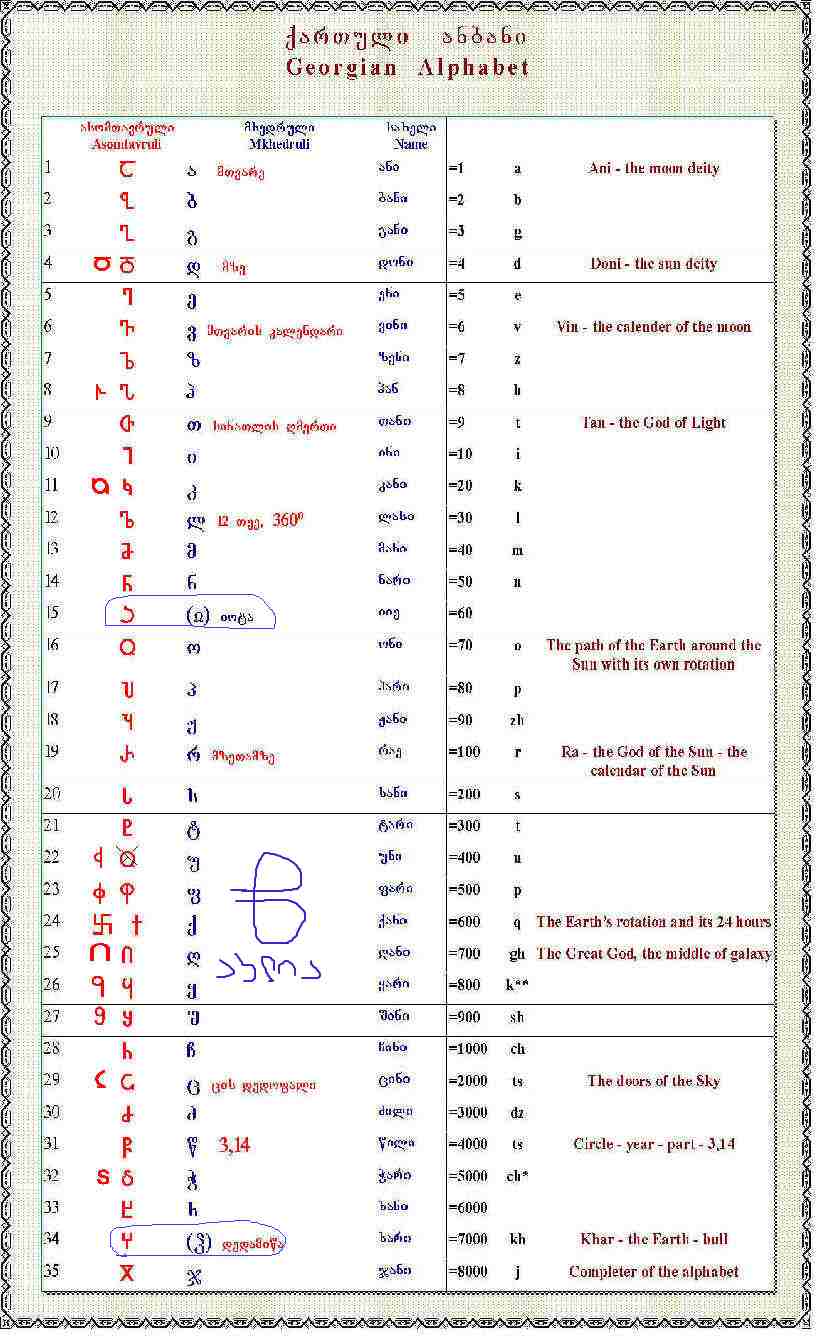 ქართული ანბანი
Georgian Alphabet
ასომთავრული მხედრული სახელი
Asomtavruli Mkhedruli Name
1 Ⴀ ა მთვარე ანი =1 a Ani - the moon deity
2 Ⴁ ბ ბანი =2 b
3 Ⴂ გ განი =3 g
4 Ⴃ დ მზე დონი =4 d Doni - the sun deity
5 Ⴄ ე ენი =5 e
6 Ⴅ ვ მთვარის კალენდარი ვინი =6 v Vin - the calender of the moon
7 Ⴆ ზ ზენი =7 z
8 ჰ ჰან =8 h
9 Ⴇ თ სინათლის ღმერთი თანი =9 t Tan - the God of Light
10 Ⴈ ი ინი =10 i
11 Ⴉ კ კანი =20 k
12 Ⴊ ლ 12 თვე, 360⁰ ლასი =30 l
13 Ⴋ მ მანი =40 m
14 Ⴌ ნ ნარი =50 n
15 Ⴢ (Ω) იოტა იიე =60
16 Ⴍ ო ონი =70 o The path of the Earth around the
Sun with its own rotation
17 Ⴎ პ პარი =80 p
18 Ⴏ ჟ ჟანი =90 zh
19 Ⴐ რ მზეთამზე რაე =100 r Ra - the God of the Sun - the
calendar of the Sun
20 Ⴑ ს სანი =200 s
21 Ⴒ ტ ტარი =300 t
22 უ უნი =400 u
23 Ⴔ ფ ფარი =500 p
24 卐 Ⴕ ქ ქანი =600 q The Earth's rotation and its 24 hours
25 Ⴖ ღ ღანი =700 gh The Great God, the middle of galaxy
26 Ⴗ ყ ყარი =800 k**
27 Ⴘ შ შინი =900 sh
28 Ⴙ ჩ ჩინი =1000 ch
29 Ⴚ ც ცის დედოფალი ცინი =2000 ts The doors of the Sky
30 Ⴛ ძ ძილი =3000 dz
31 Ⴜ წ 3,14 წილი =4000 ts Circle - year - part - 3,14
32 Ⴝ ჭ ჭარი =5000 ch*
33 Ⴞ ხ ხანი =6000
34 Ⴤ (ჴ) დედამიწა ხარი =7000 kh Khar - the Earth - bull
35 Ⴟ ჯ ჯანი =8000 j Completer of the alphabet